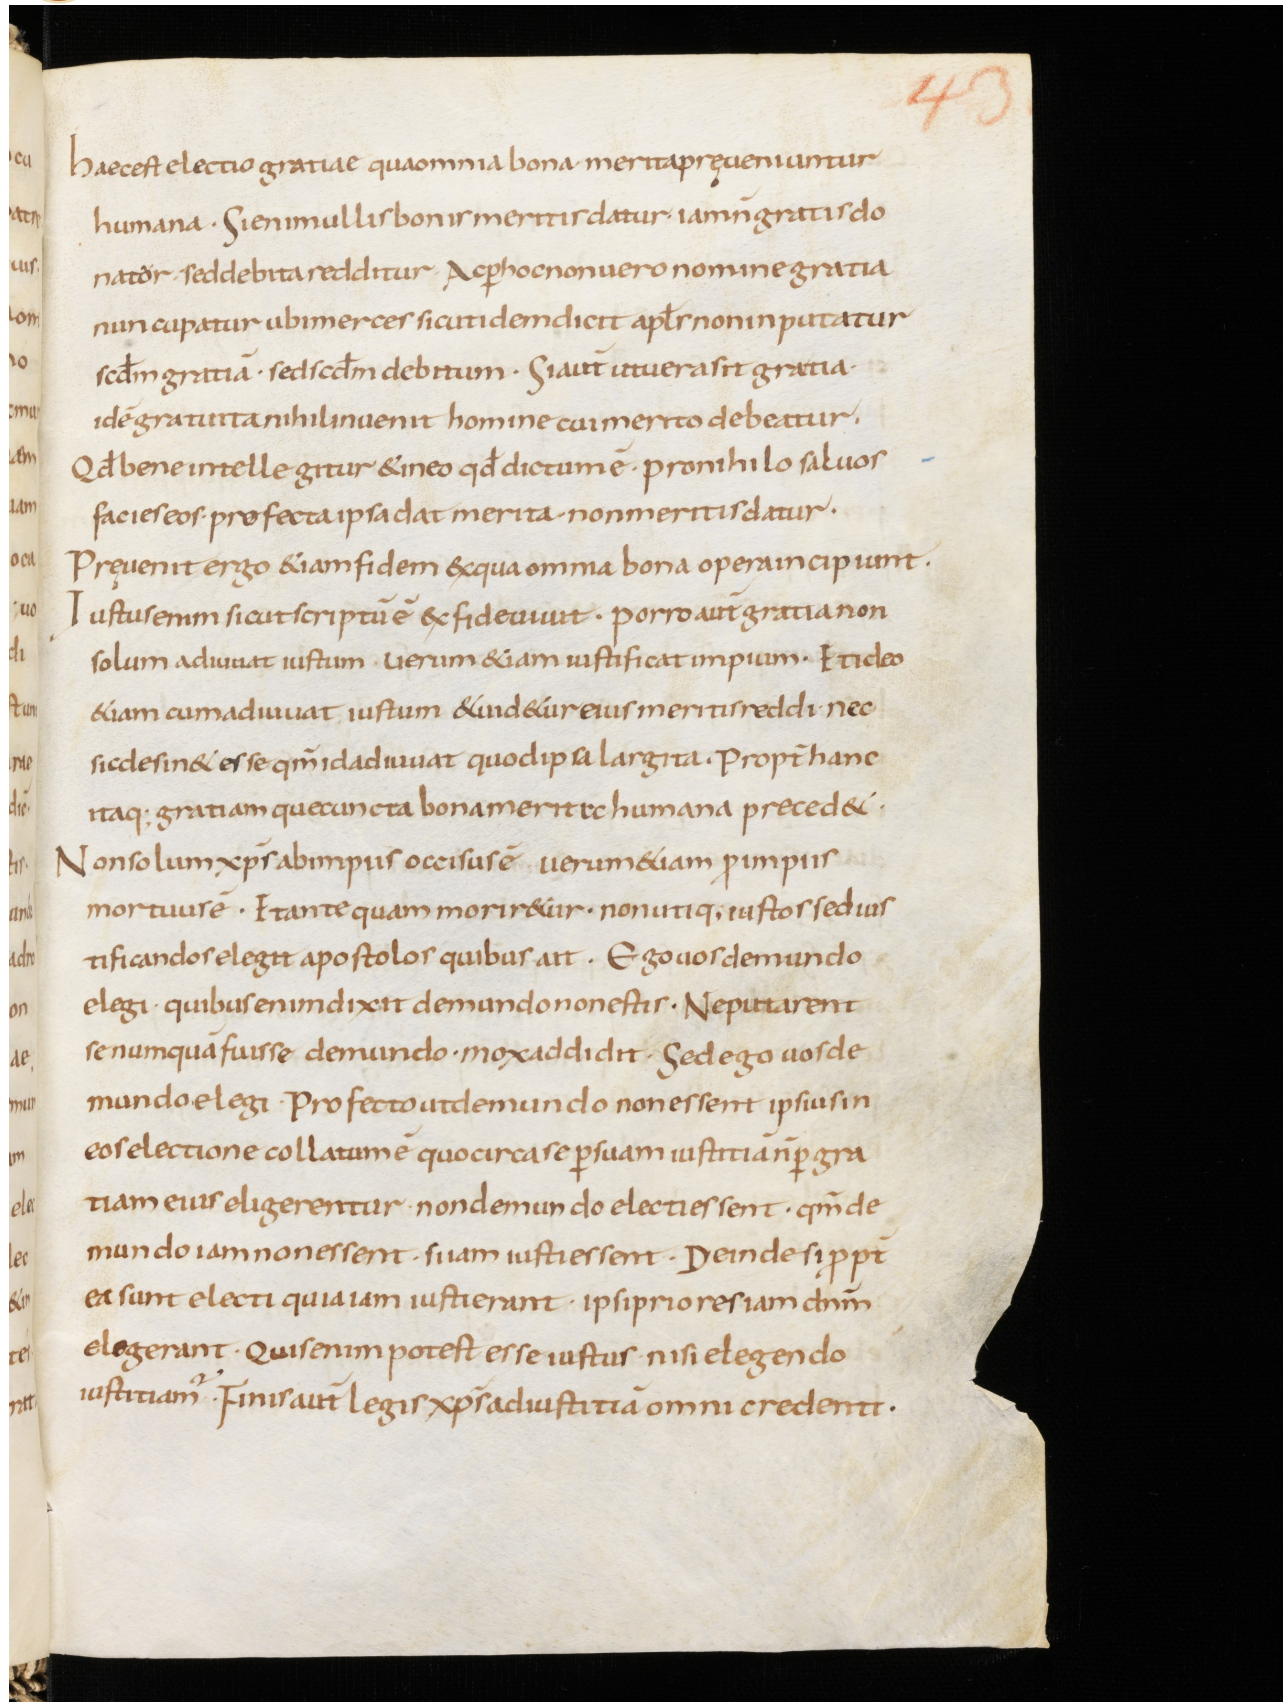 43
haec est electio gratiae qua omnia bona · merita pręueniuntur
humana · Si enim ullis bonis meritis datur · iam n̄ gratis do
nat̄or · sed debita redditur · Ac ꝑ hoc non uero nomine gratia
nuncupatur ubi merces sicut idem dicit apl̄s non inputatur
scd̄m gratiā · sed scd̄m debitum · Si aut̄ ut uera sit gratia ·
id ē gratuita nihil inuenit homine cui merito debeatur ·
Qd̄ bene intellegitur & in eo qd̄ dictum ē · pro nihilo saluos
facies eos · profecta ipsa dat merita · non meritis datur ·
Pręuenit ergo &iam fidem ex qua omnia bona opera incipiunt ·
Iustus enim sicut scriptū ē ex fide uiuit · porro aut̄ gratia non
solum adiuuat iustum · uerum &iam iustificat impium · Et ideo
&iam cum adiuuat iustum & uid&ur eius meritis reddi · nec
sic desin& esse qm̄ id adiuuat quod ipsa largita · Propt̄ hanc
itaq; gratiam que cuncta bona merita humana preced& ·
Non solum xp̄s ab impiis occisus ē uerum &iam ꝓ impiis
mortuus ē · Et ante quam morir&ur · non utiq; iustos sed ius
tificandos elegit apostolos quibus ait · Ego uos de mundo
elegi · quibus enim dixit de mundo non estis · Ne putarent
se numquā fuisse de mundo · mox addidit · Sed ego uos de
mundo elegi · Profecto ut de mundo non essent ipsius in
eos electione collatum ē quocirca se ꝑ suam iustitiā n̄ ꝑ gra
tiam eius eligerentur · non de mundo electi essent · qm̄ de
mundo iam non essent · suam iusti essent · Deinde si ꝓpt̄
ea sunt electi quia iam iusti erant · ipsi priores iam dn̄m
elegerant · Quis enim potest esse iustus · nisi elegendo
iustitiam · Finis aut̄ legis xp̄s ad iustitiā omni credenti ·